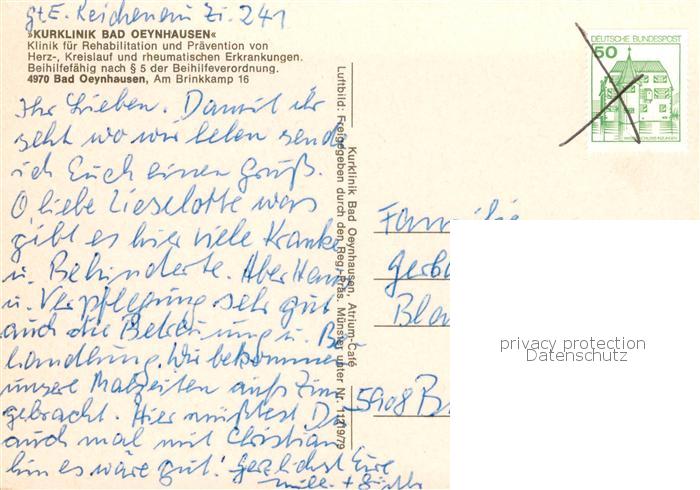 Zi. 241
»KURKLINIK BAD OEYNHAUSEN«
Klinik für Rehabilitation und Prävention von
Herz-, Kreislauf und rheumatischen Erkrankungen.
Beihilfefähig nach § 5 der Beihilfeverordnung.
4970 Bad Oeynhausen, Am Brinkkamp 16
Ihr Lieben. Damit ihr
seht wo wir leben send
ich Euch einen Gruß.
O liebe Lieselotte was
gibt es hier viele Kranke
u. Behinderte. Aber Haus
u. Verpflegung sehr gut
auch die Betreuung u. Be
handlung. Wir bekommen
unsere Malzeiten aufs Zim
gebracht. Hier müßtest Du
auch mal mit Christian
hin es wäre gut! Herzlichst Eure
Luftbild: Freigegeben durch den Reg.-Präs. Münster unter Nr. 11219/79
Kurklinik Bad Oeynhausen, Atrium-Café
DEUTSCHE BUNDESPOST
50
Familie
Gerb
Bla
5908 B
privacy protection
Datenschutz